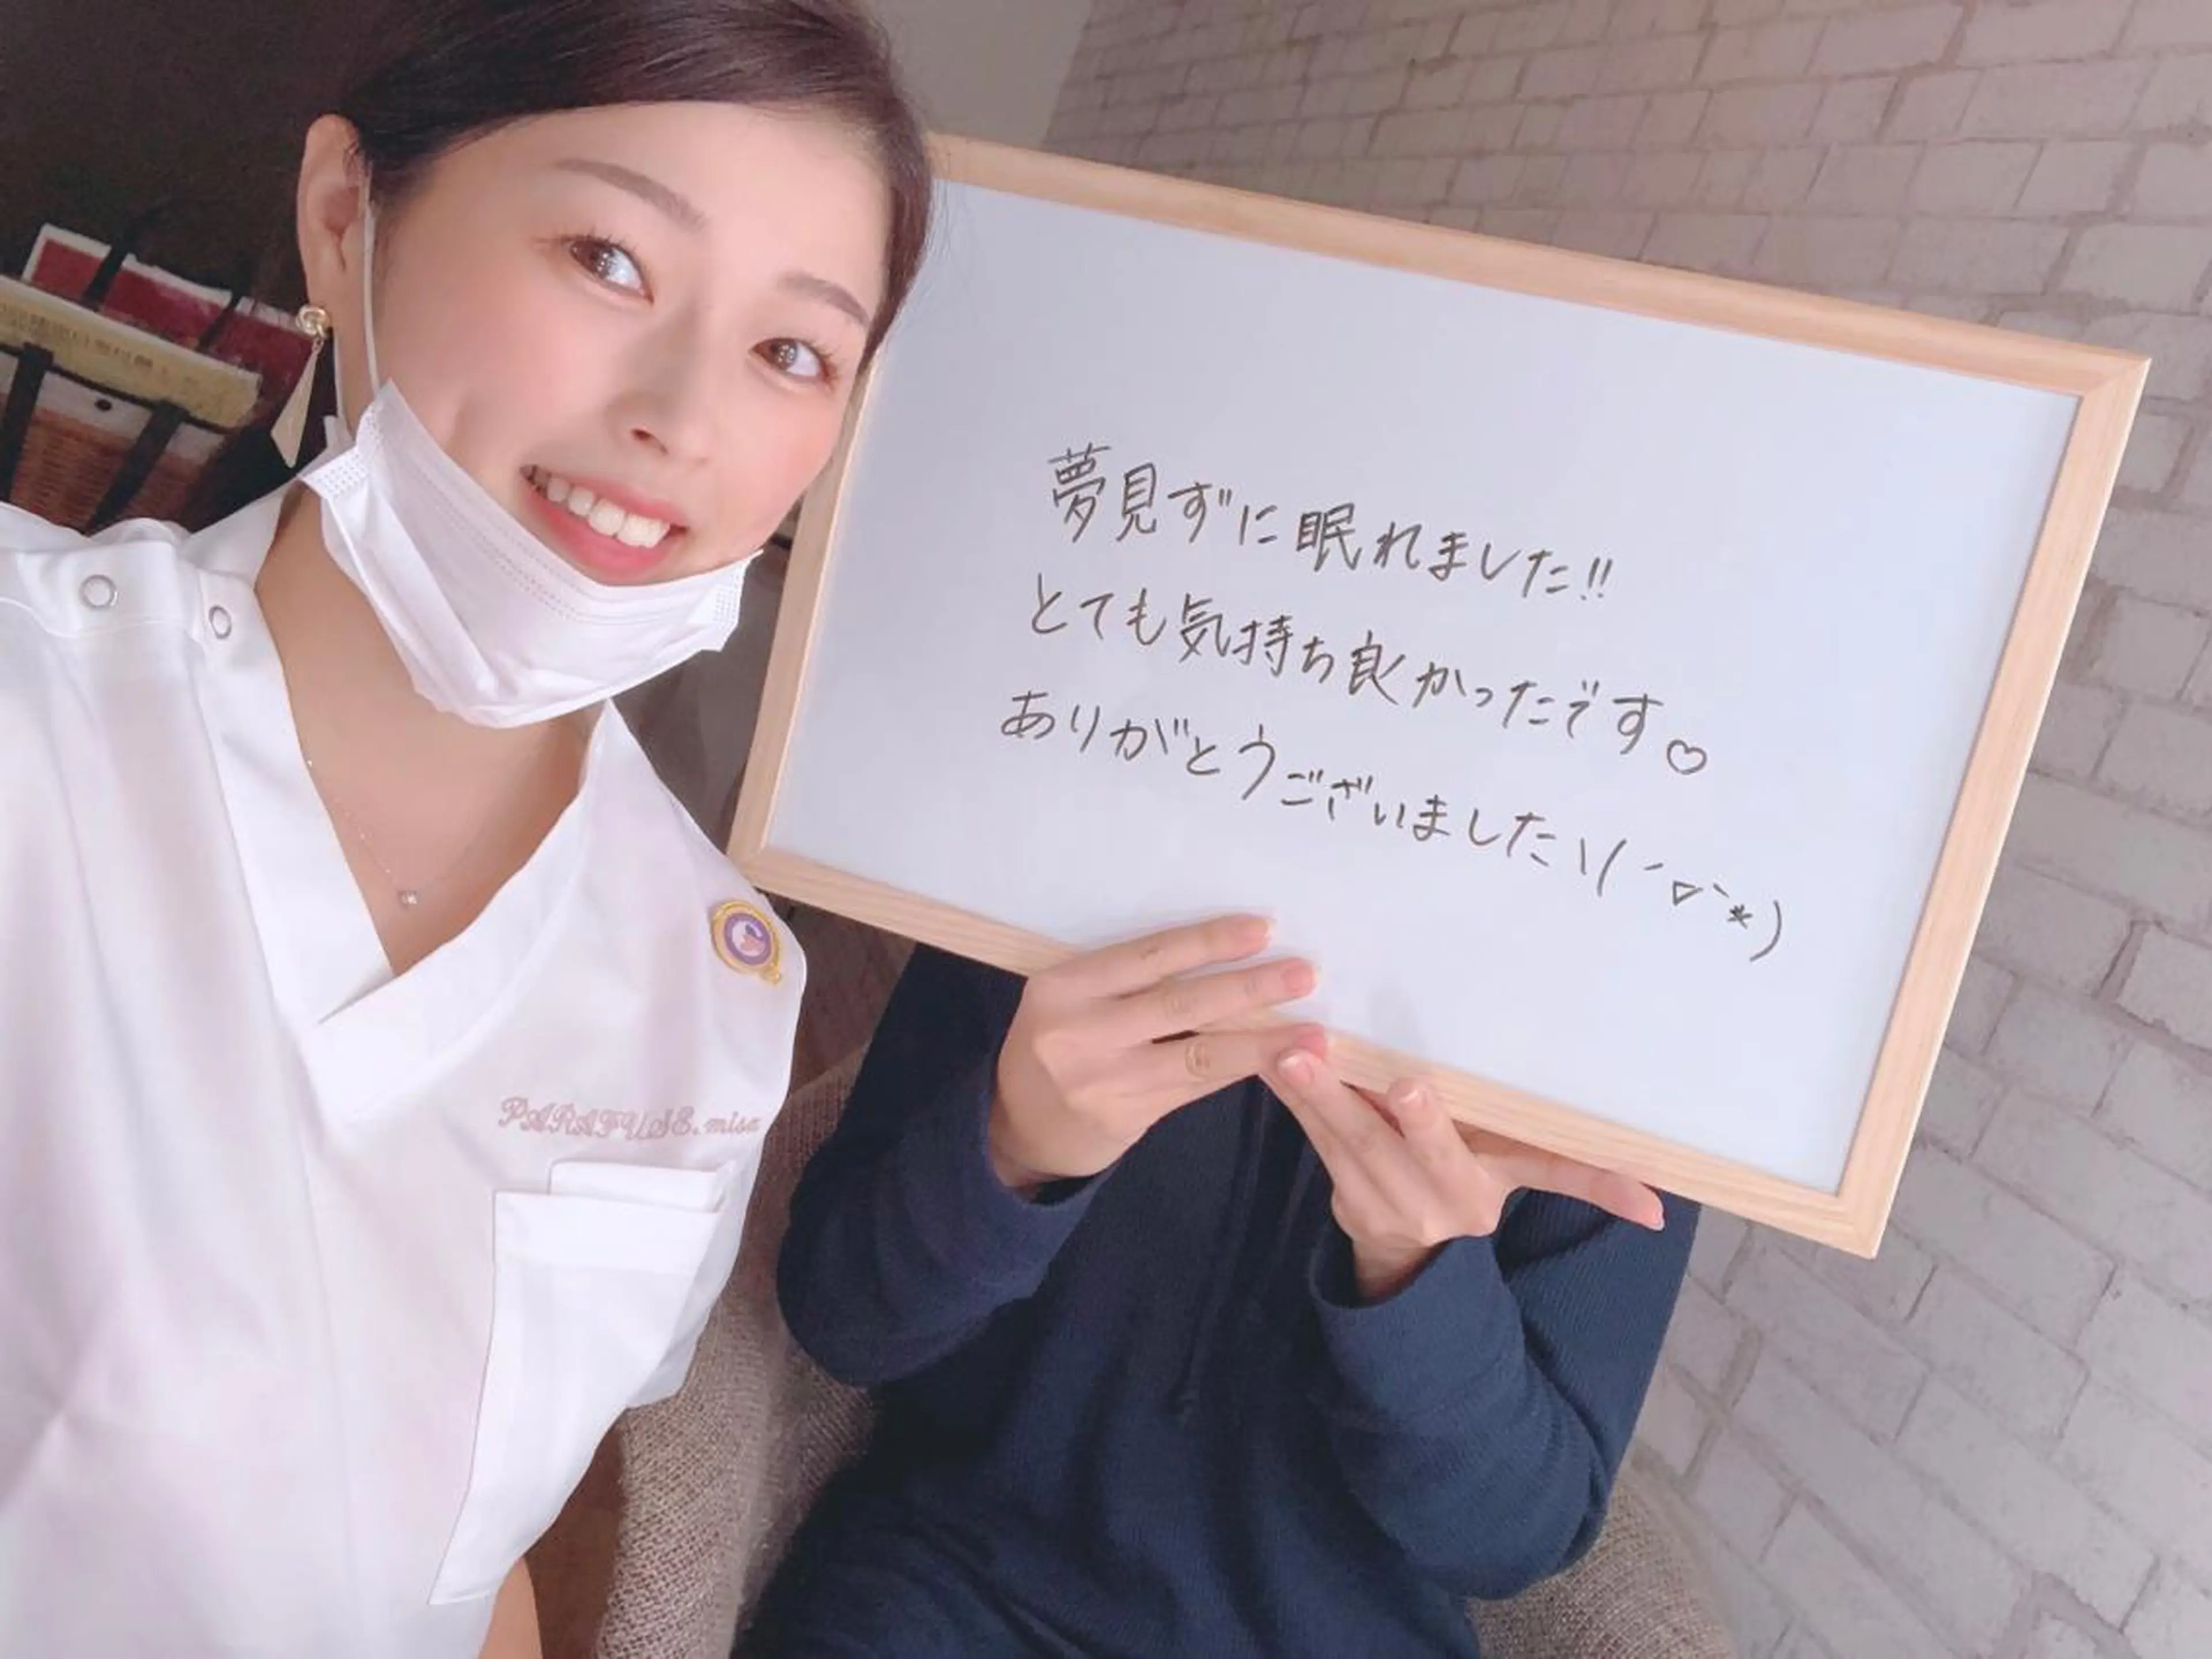 夢見ずに眠れました!!
とても気持ち良かったです♡
ありがとうございました\(´▽`*)
PARAFUSE.misa